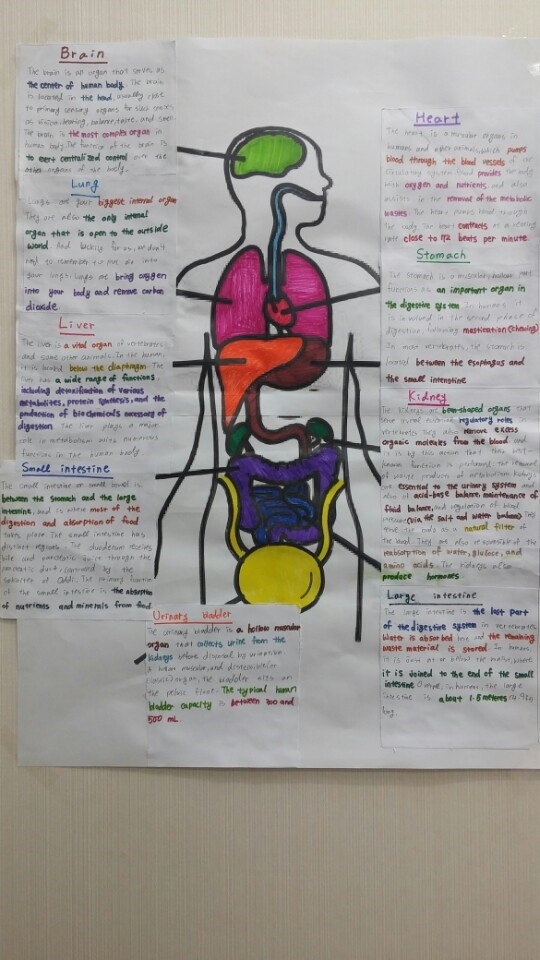 Brain
The brain is an organ that serves as
the center of human body. The brain
is located in the head, usually close
to primary sensory organs for such senses
as vision, hearing, balance, taste, and smell.
The brain is the most complex organ in
human body. The function of the brain is
to exert centralized control over the
other organs of the body.
Lung
Lungs are your biggest internal organ
They are also the only internal
organ that is open to the outside
world
into your body and remove carbon
dioxide
Liver
The liver is a vital organ of vertebrates
and some other animals. In the human,
it is located below the diaphragm. The
liver has a wide range of functions,
including detoxification of various
metabolites, protein synthesis, and the
production of biochemicals necessary of
digestion. The liver plays a major
role in metabolism with numerous
functions in the human
Small intestine
The small intestine or small bowel is
between the stomach and the large
intestine, and is where most of the
digestion and absorption of food
takes place. The small intestine has
distinct regions. The duodenum receives
bile and pancreatic juice through the
pancreatic duct, controlled by the
sphincter of Oddi. The primary function
of the small intestine is the absorption
of nutrients and minerals from food.
Heart
The heart is a muscular organ in
humans and other animals, which pumps
blood through the blood vessels of the
circulatory system. Blood provides the body
with oxygen and nutrients, and also
assists in the removal of the metabolic
wastes. The heart pumps blood through
the body. The heart contracts at a resting
rate close to 72 beats per minute.
Stomach
The stomach is a muscular, hollow part
functions as an important organ in
the digestive system. In humans, it
is involved in the second phase of
digestion, following mastication (chewing)
In most vertebrates, the stomach is
located between the esophagus and
the small intenstine
Kidney
The kidneys are bean-shaped organs
several regulatory roles in
vertebrates. They also remove excess
organic molecules from the blood, and
it is by this action that their best-
known function is performed: the removal
of waste products of metabolism. Kidneys
are essential to the urinary system and
also acid-base balance, maintenance of
fluid balance, and regulation of blood
pressure (via the salt and water balance) They
serve the body as a natural filter of
the blood. They are also responsible of the
reabsorption of water, glucose, and
amino acids. The kidneys also
produce hormones.
Large intestine
The large intestine is the last part
of the digestive system in vertebrates
Water is absorbed here and the remaining
waste material is stored. In humans,
it is just at or below the waist, where
it is joined to the end of the small
intestine
intestine is about 1.5 metres
long.
Urinary bladder
The urinary bladder is a hollow muscular
organ that collects urine from the
kidneys before disposal by urination.
A hollow muscular, and distensible (or
elastic) organ, the bladder sits on
the pelvic floor. The typical human
bladder capacity is between 300 and
500 mL